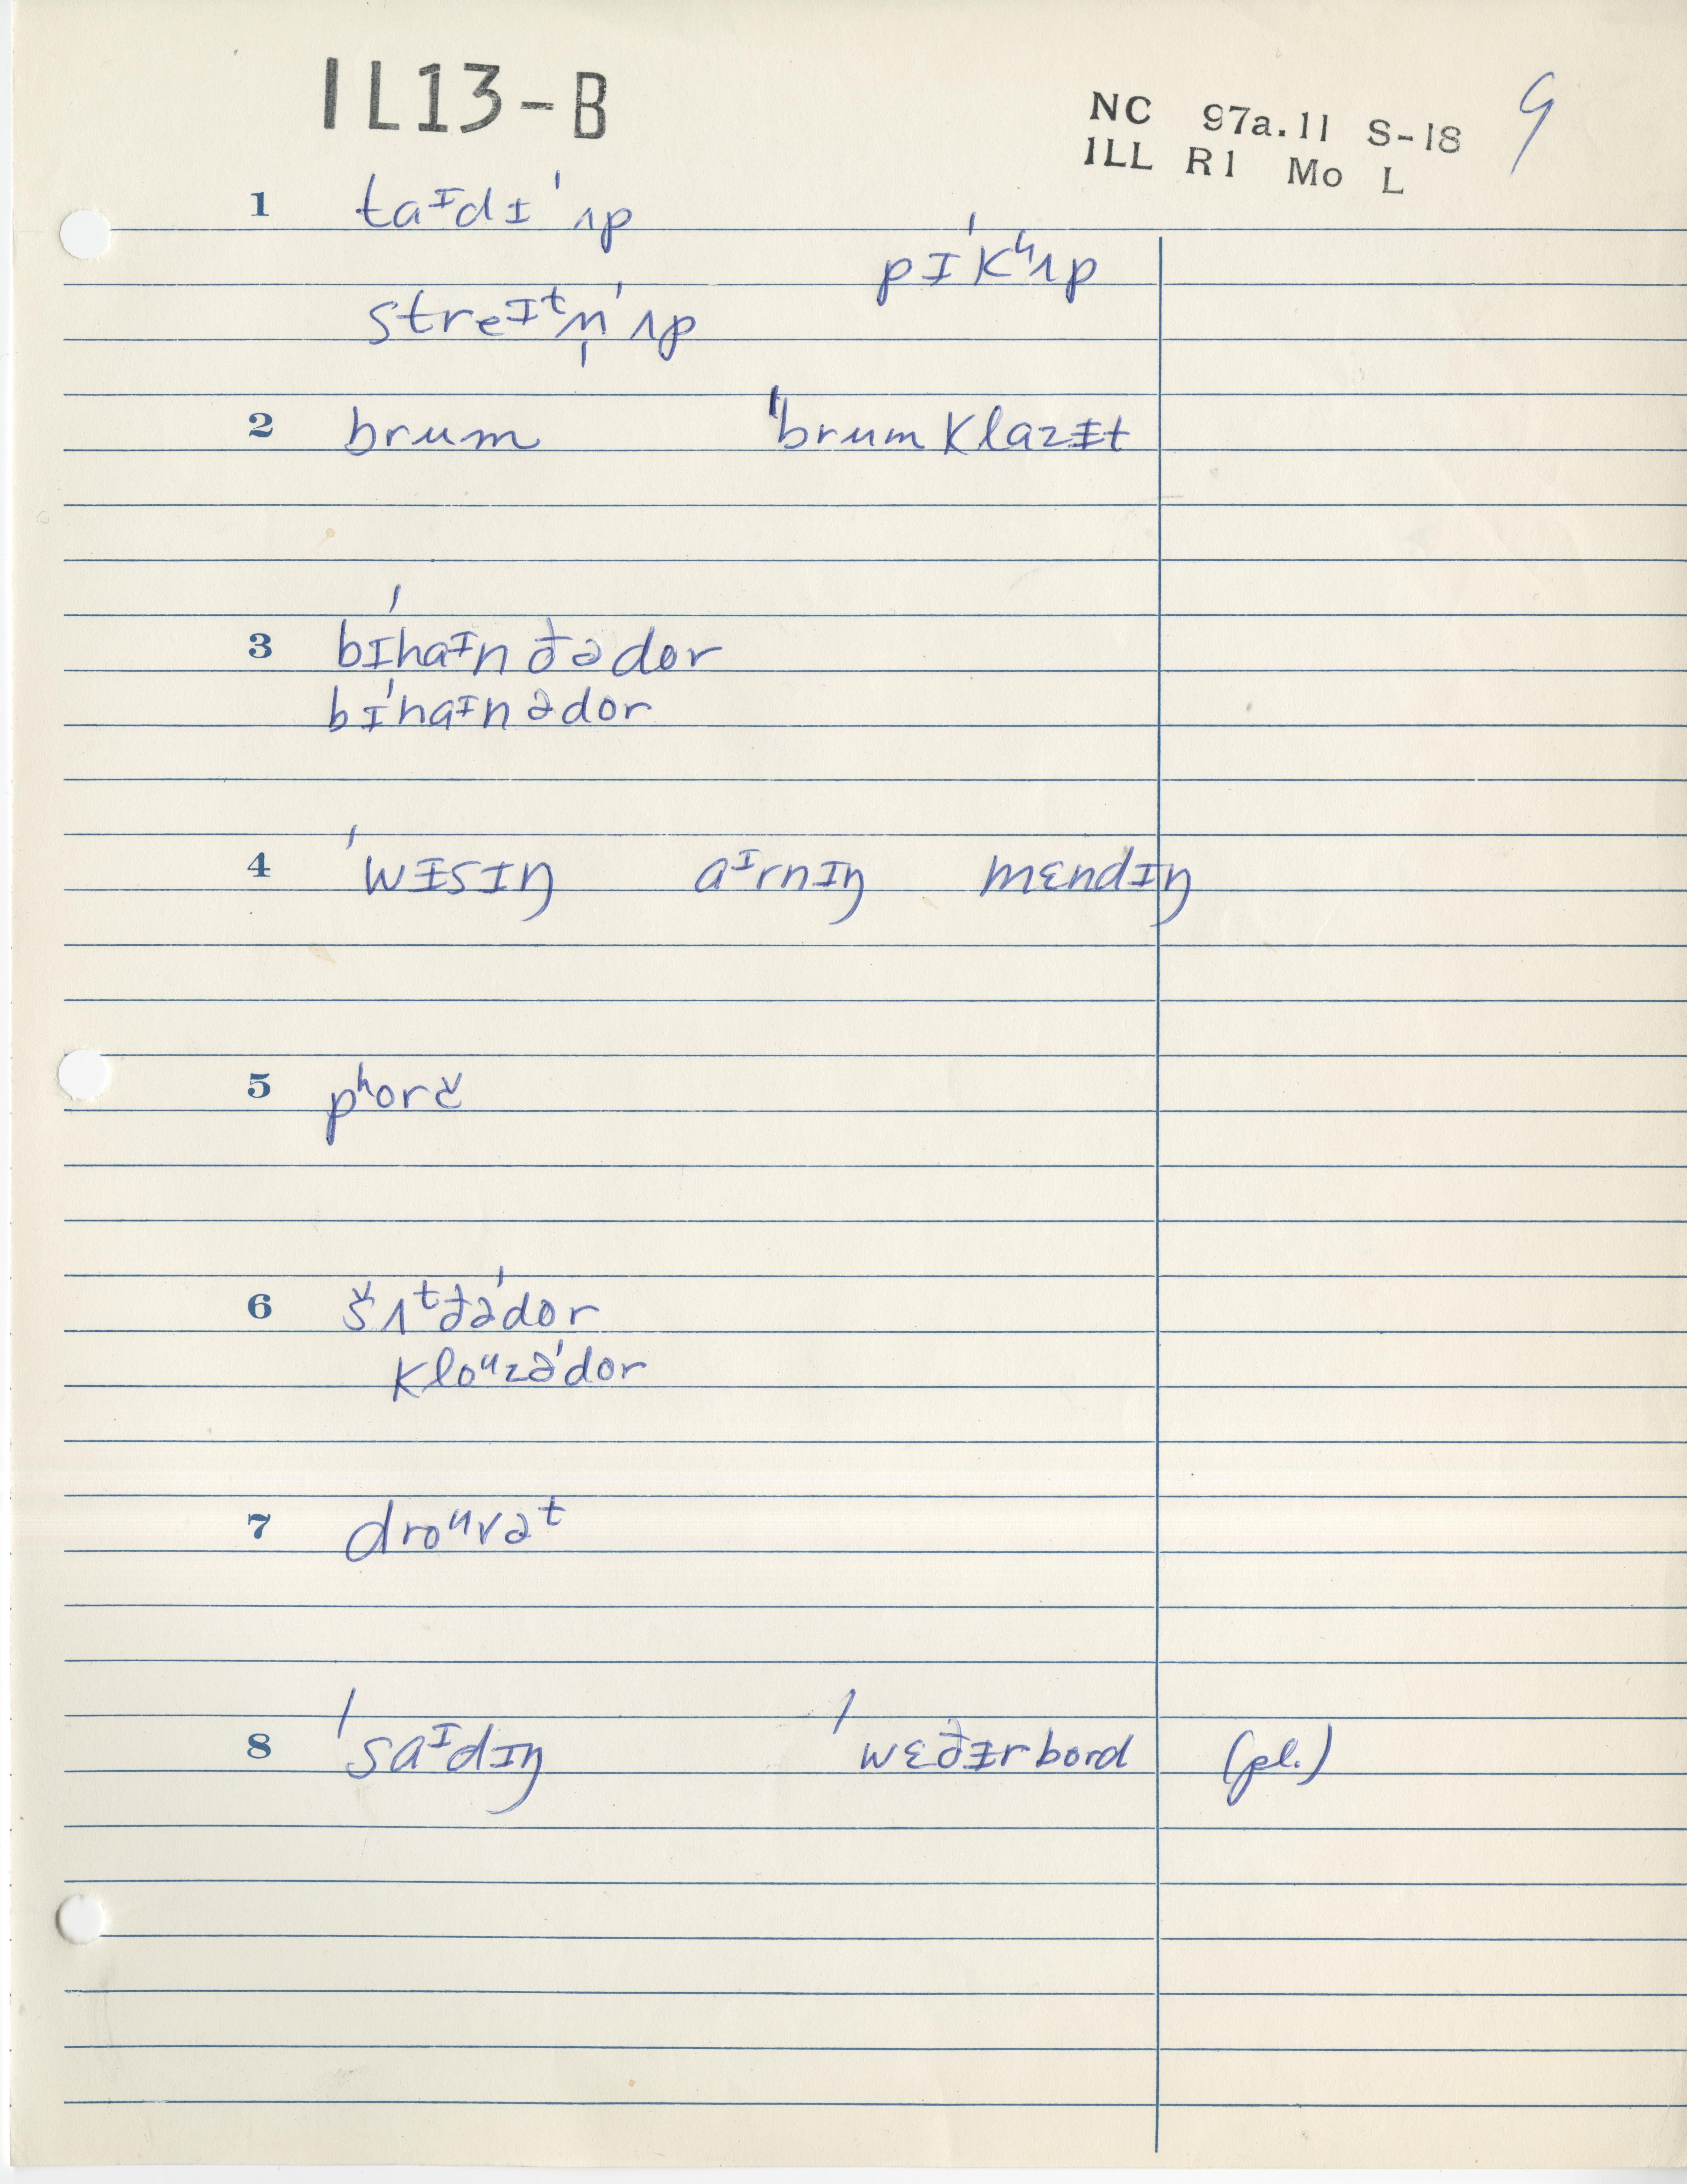 IL13-B
NC 97a.11 S-18 9
ILL R1 Mo L
1 taᶦdɪˈʌp
pɪˈkʰʌp
streᶦᵗn̩ˈʌp
2 brum ˈbrumklazɨt
3 bɪˈhaᶦnðədor
bɪˈhaᶦnədor
4 ˈwɨsɪŋ aᶦrnɪŋ mɛndɪŋ
5 pʰorč
6 šʌᵗðəˈdor
kloᵘzəˈdor
7 droᵘvəᵗ
8 ˈsaᶦdɪŋ ˈwɛðɨrbord (pl.)